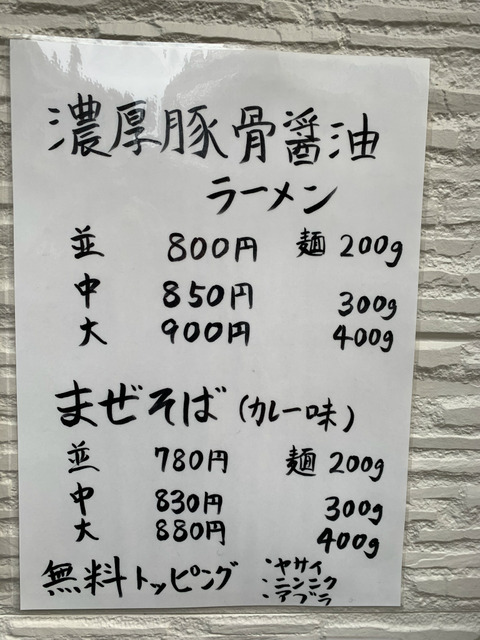 濃厚豚骨醤油
ラーメン
並 800円 麺 200g
中 850円 300g
大 900円 400g
まぜそば (カレー味)
並 780円 麺 200g
中 830円 300g
大 880円 400g
無料トッピング
:ヤサイ
:ニンニク
:アブラ